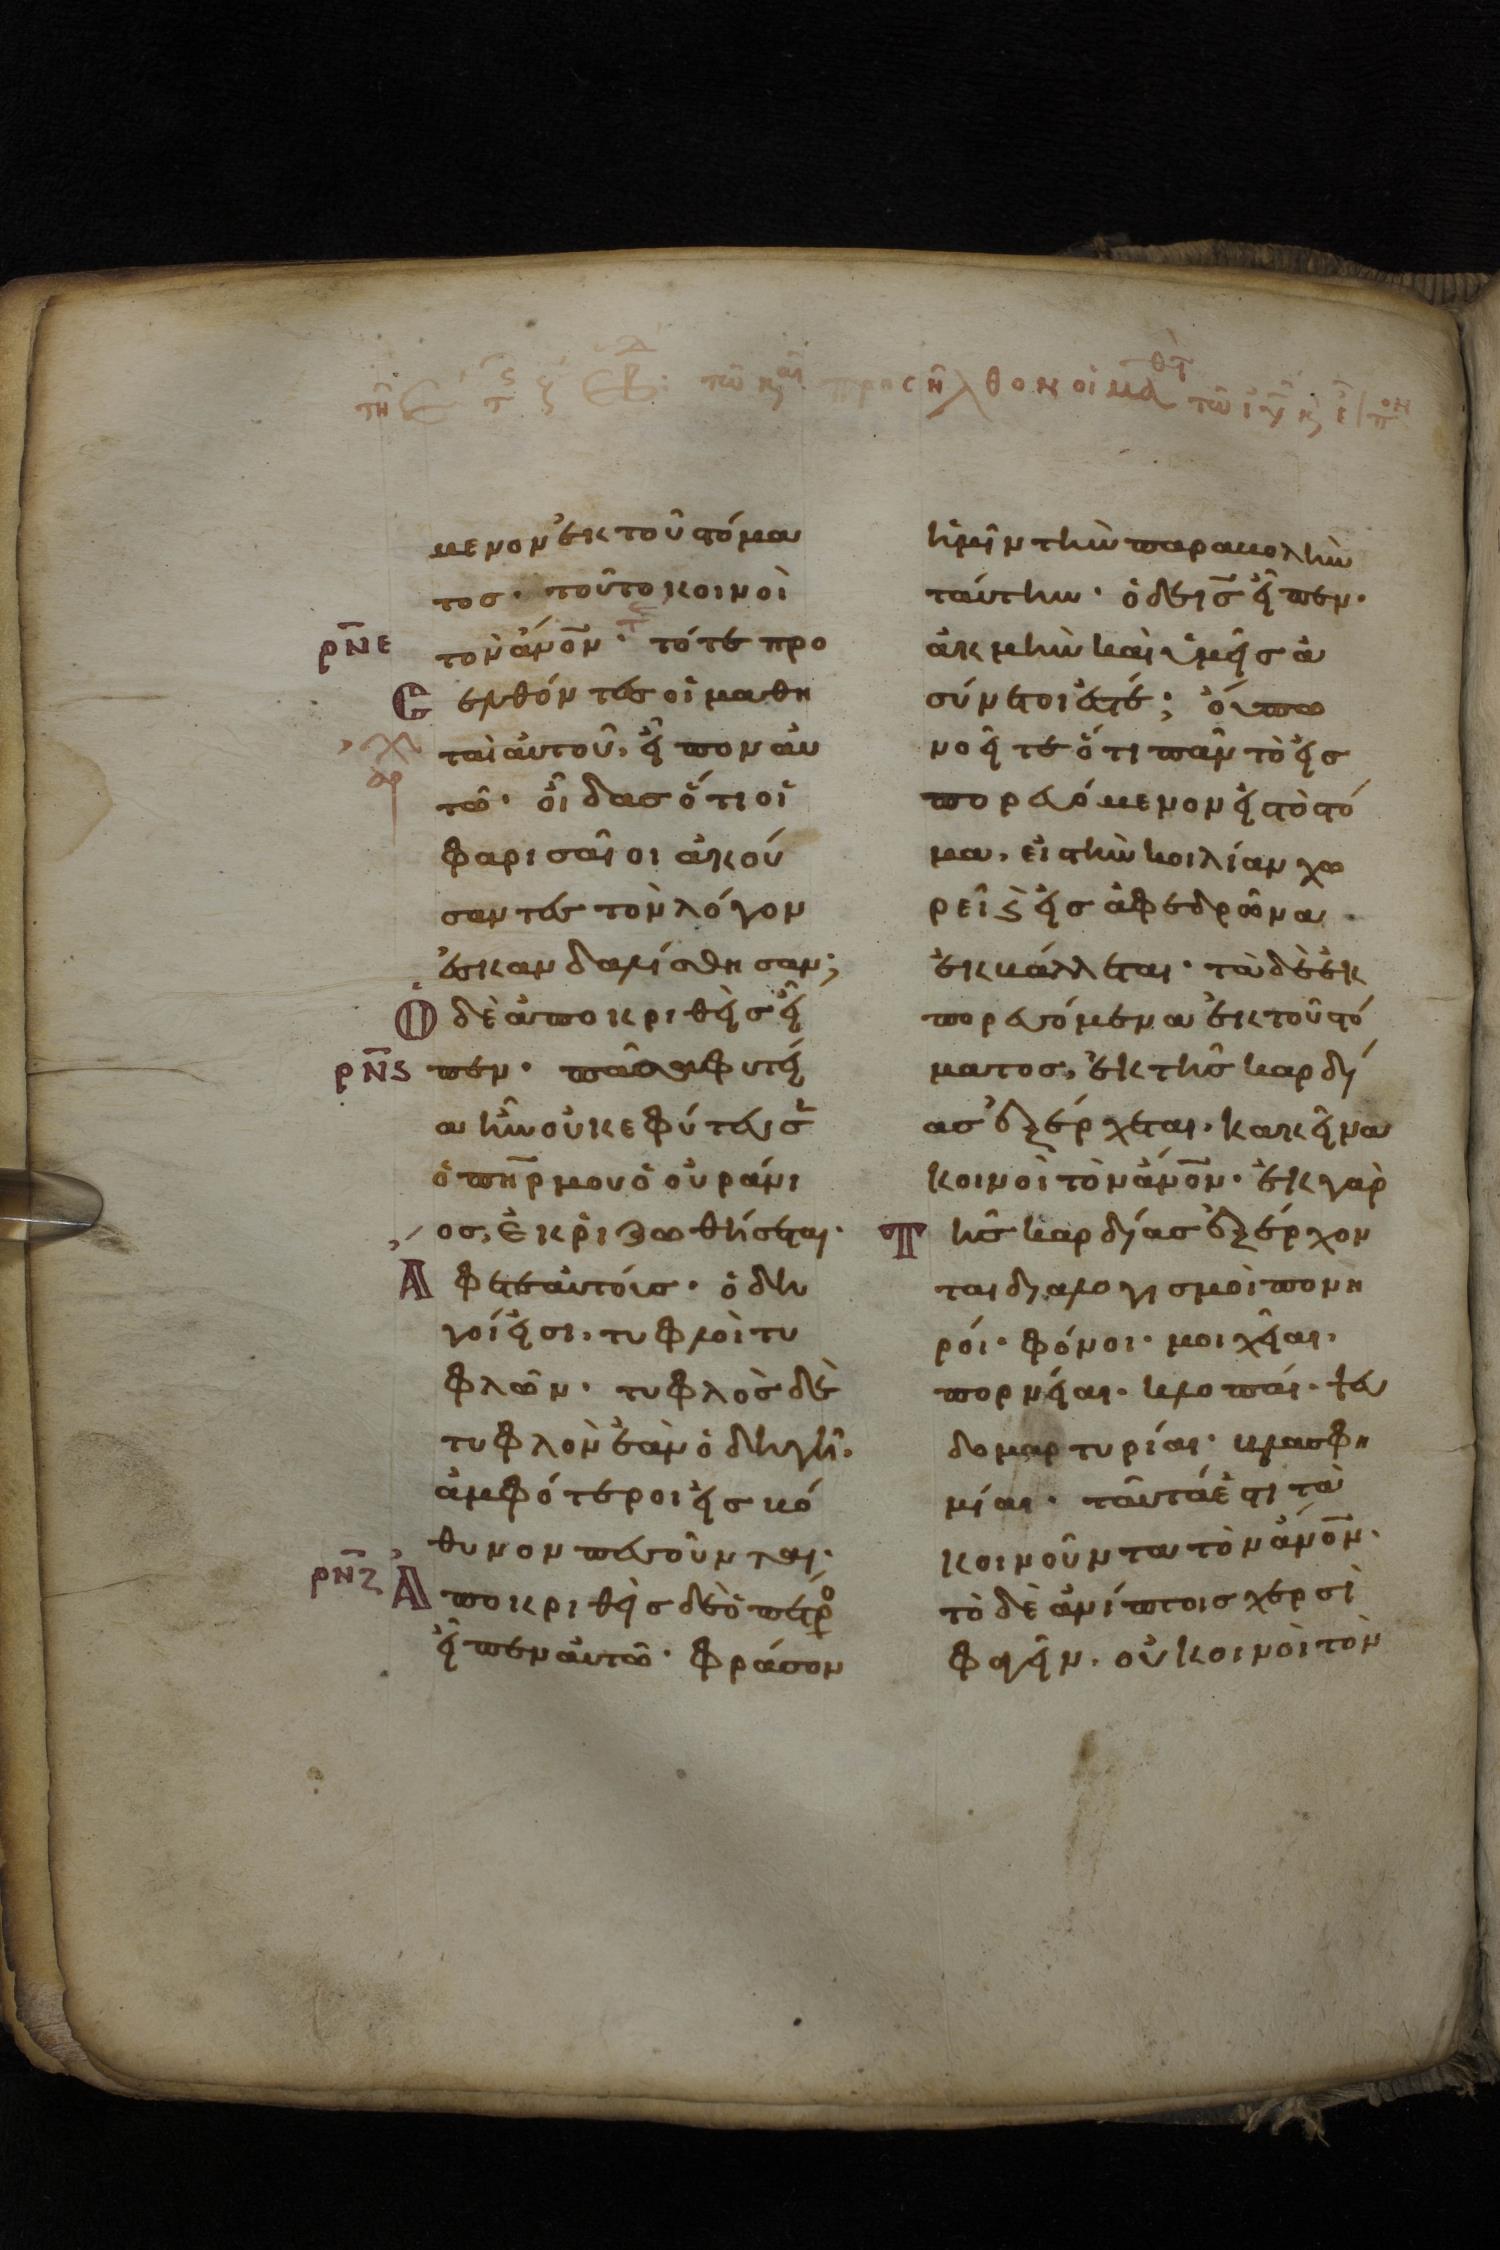 προσῆλθον οἱ μαθτ τῶ ιυ κ
μενον ἐκ τοῦ στόμα
τοσ· τοῦτο κοινοὶ
ρνε
τὸν ἄνον· τότε προ
ελθόντες οἱ μαθη
ταὶ αὐτοῦ, εἶπον αὐ
τῶ· οἶδασ ὅτι οἱ
φαρισαῖοι ἀκού
σαντες τὸν λόγον
ἐσκανδαλίσθησαν;
Ὁ δὲ ἀποκριθεὶσ εἶ
ρνς
πεν· πᾶσα φυτεί
α ἣν οὐκ ἐφύτευσε
ὁ πηρ μου ὁ οὐράνι
οσ, ἐκριζωθήσεται·
Ἄφετε αὐτούσ· ὁδη
γοί εἰσι, τυφλοὶ τυ
φλῶν· τυφλὸσ δὲ
τυφλὸν ἐὰν ὁδηγῆ·
ἀμφότεροι εἰσ βό
θυνον πεσοῦνται·
ρνζ
Ἀποκριθεὶσ δὲ ὁ πέτρο
εἶπεν αὐτῶ· φράσον
ἡμῖν τὴν παραβολὴν
ταύτην· ὁ δὲ ισ εἶπεν·
ἀκμὴν καὶ ὑμεῖσ ἀ
σύνετοι ἐστέ; οὔπω
νοεῖτε ὅτι πᾶν τὸ εἰσ
πορευόμενον εἰ στὸ στό
μα, εἰ στὴν κοιλίαν χω
ρεῖ ϗ εἰσ ἀφεδρῶνα
ἐκβάλλεται· τὰ δὲ ἐκ
πορευόμενα ἐκ τοῦ στό
ματοσ, ἐκ τῆσ καρδί
ασ ἐξέρχεται· κακεῖνα
κοινοὶ τὸν ἄνον· ἐκ γὰρ
Τῆσ καρδίασ ἐξέρχον
ται διαλογισμοὶ πονη
ρόι· φόνοι· μοιχεῖαι,
πορνείαι· κλοπάι· ψευ
δομαρτυρίαι· βλασφη
μίαι· ταῦτά ἐστι τὰ
κοινοῦντα τὸν ἄνον·
τὸ δὲ ἀνίπτοισ χερσὶ
φαγεῖν, οὐ κοινοὶ τὸν